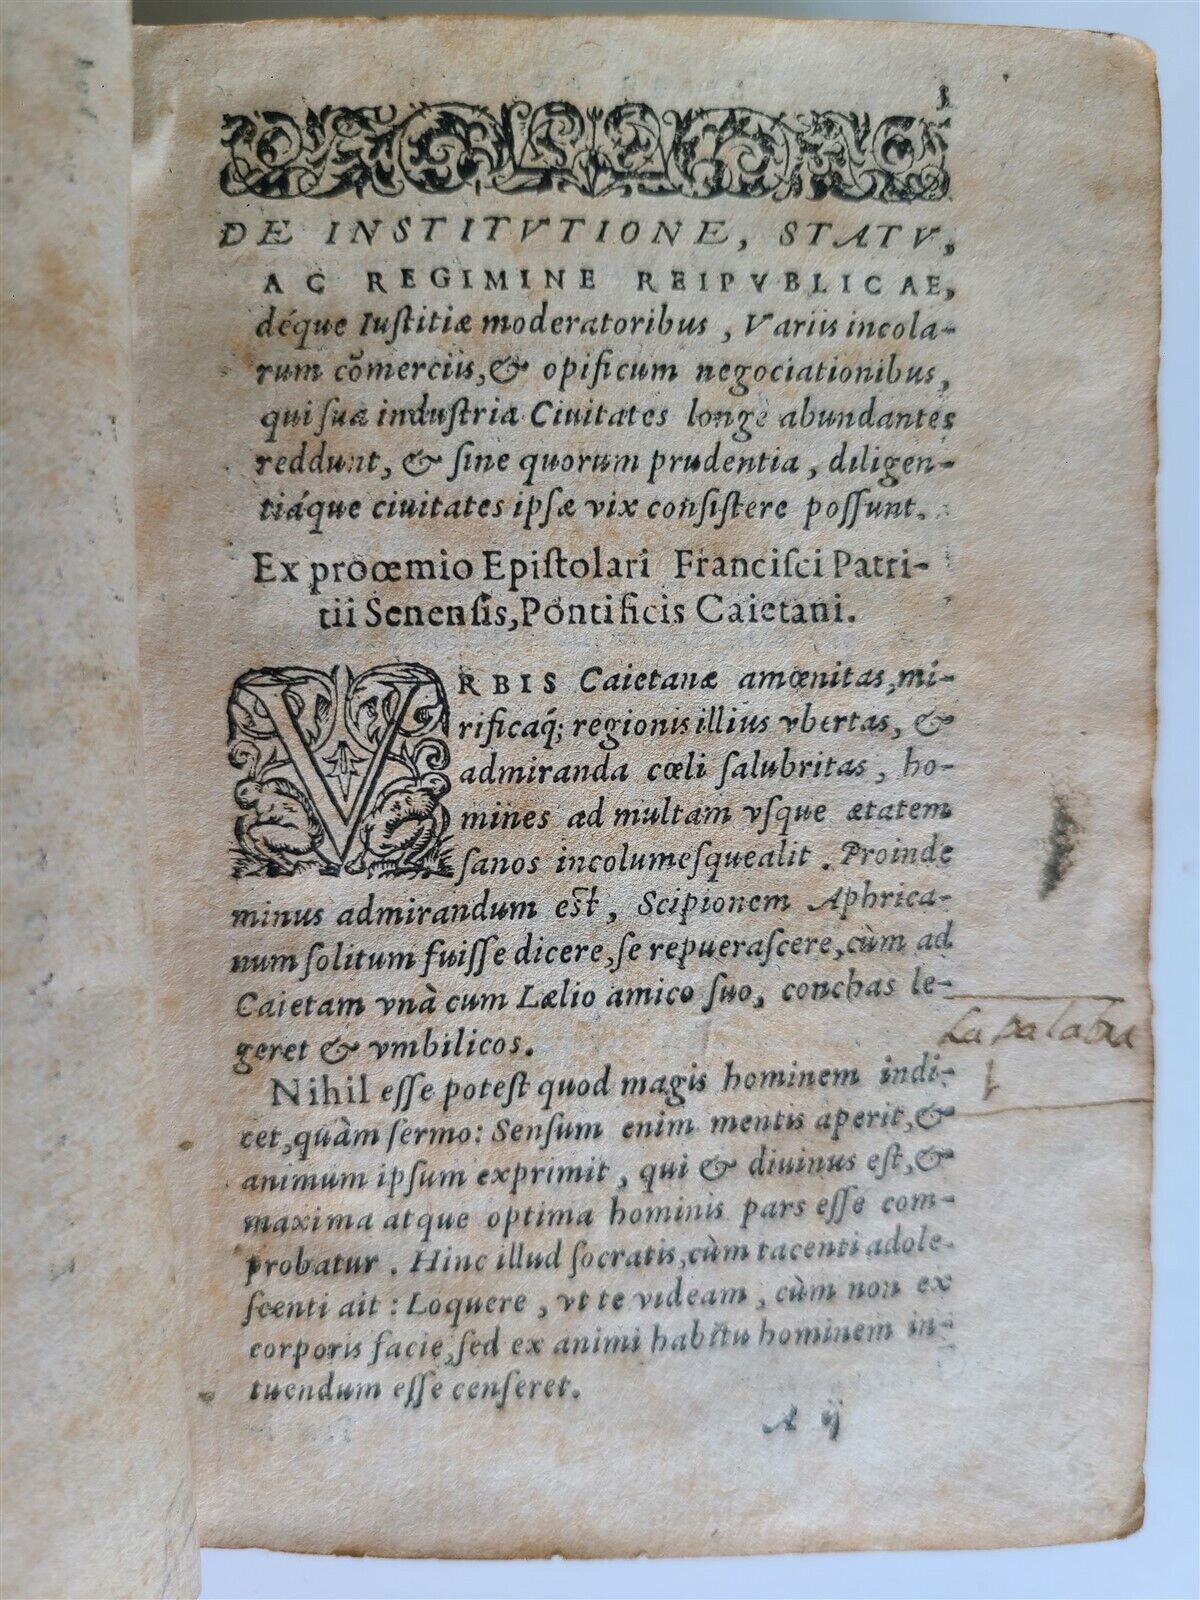 1
DE INSTITVTIONE, STATV,
AC REGIMINE REIPVBLICAE,
déque Iuſtitiæ moderatoribus, Variis incola-
rum cõmerciis, & opificum negociationibus,
qui ſua induſtria Ciuitates longè abundantes
reddunt, & ſine quorum prudentia, diligen-
tiáque ciuitates ipſæ vix conſiſtere poſſunt.
Ex proœmio Epiſtolari Franciſci Patri-
tii Senenſis, Pontificis Caietani.
VRBIS Caietanæ amœnitas, mi-
rificaq́; regionis illius vbertas, &
admiranda cœli ſalubritas, ho-
mines ad multam vſque ætatem
ſanos incolumeſquealit. Proinde
minus admirandum eſt, Scipionem Aphrica-
num ſolitum fuiſſe dicere, ſe repueraſcere, cùm ad
Caietam vnà cum Lælio amico ſuo, conchas le-
geret & vmbilicos.
La palabra
Nihil eſſe poteſt quod magis hominem indi-
cet, quàm ſermo: Senſum enim mentis aperit, &
animum ipſum exprimit, qui & diuinus eſt, &
maxima atque optima hominis pars eſſe com-
probatur. Hinc illud ſocratis, cùm tacenti adole-
ſcenti ait: Loquere, vt te videam, cùm non ex
corporis facie, ſed ex animi habitu hominem in-
tuendum eſſe cenſeret.
A ij